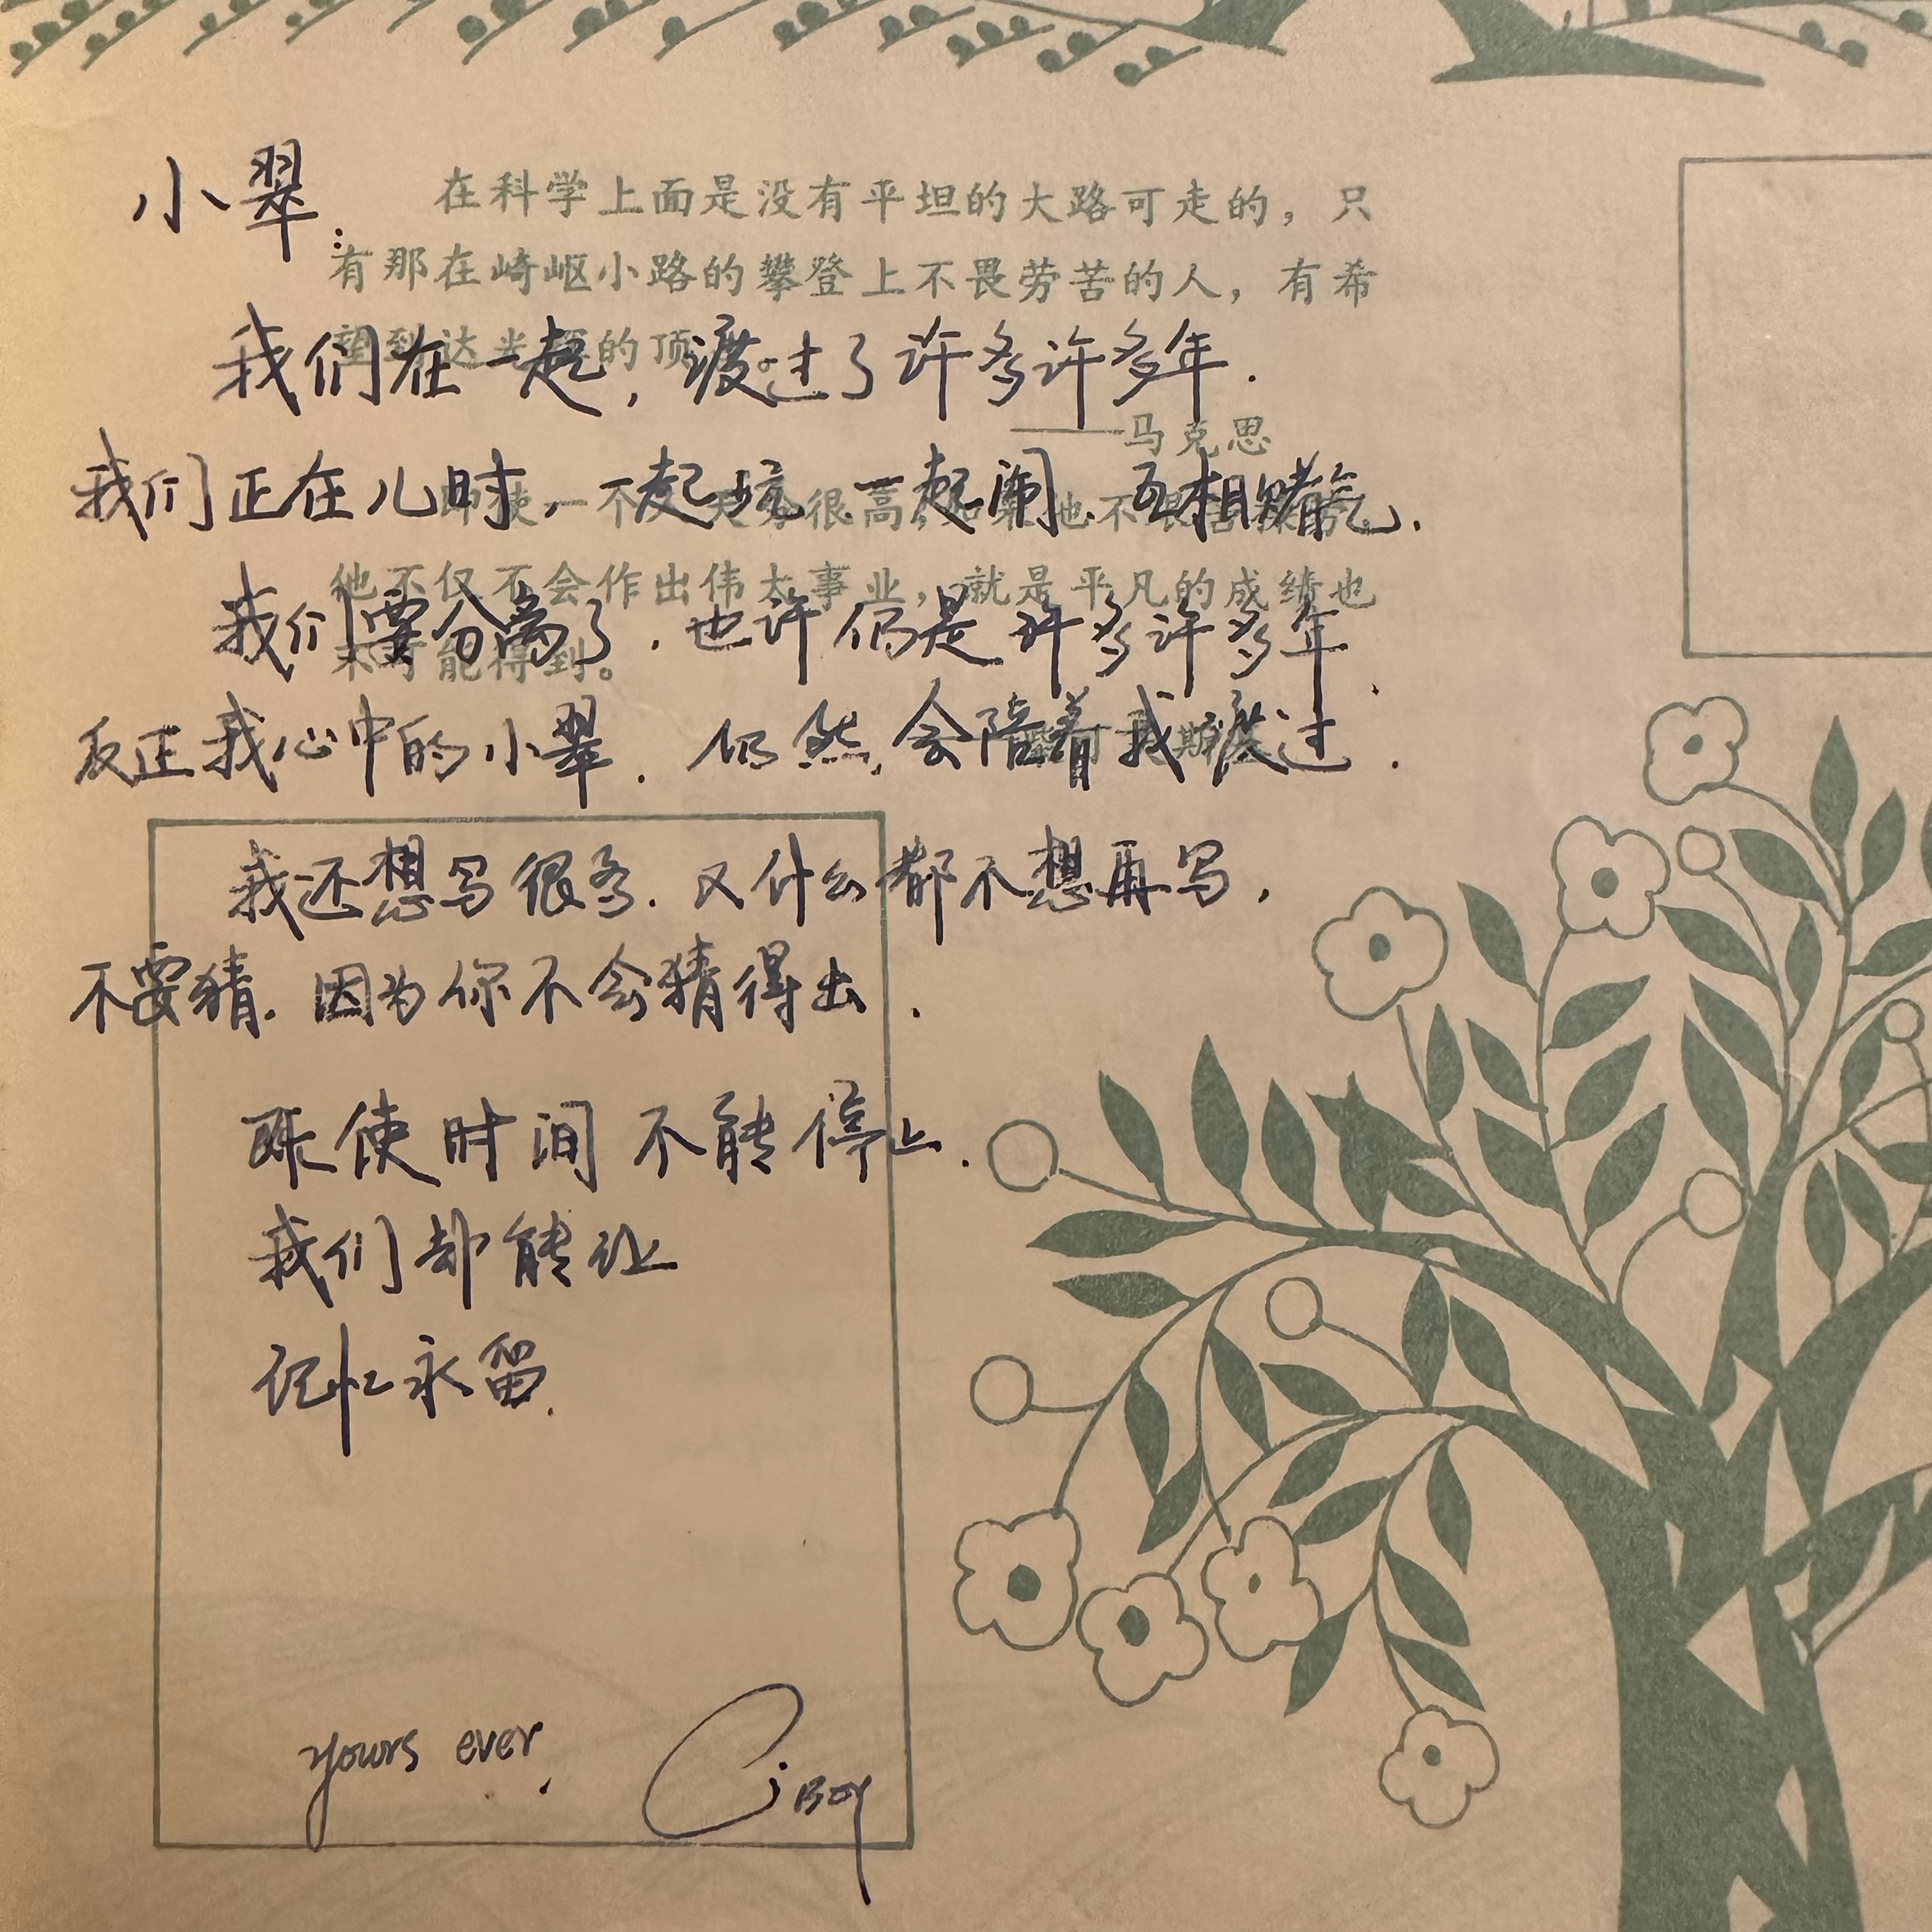 小翠:
在科学上面是没有平坦的大路可走的，只
有那在崎岖小路的攀登上不畏劳苦的人，有希
望到达光辉的顶点。
我们在一起，渡过了许多许多年.
——马克思
我们正在儿时，一起玩 一起闹 互相赌气.
即使一个人天分很高，如果他不艰苦操劳，
他不仅不会作出伟大事业，就是平凡的成绩也
不可能得到。
我们要分离了.也许仍是许多许多年.
反正我心中的小翠.仍然会陪着我渡过.
我还想写很多.又什么都不想再写.
不要猜.因为你不会猜得出.
既使时间不能停止.
我们却能让
记忆永留.
yours ever.